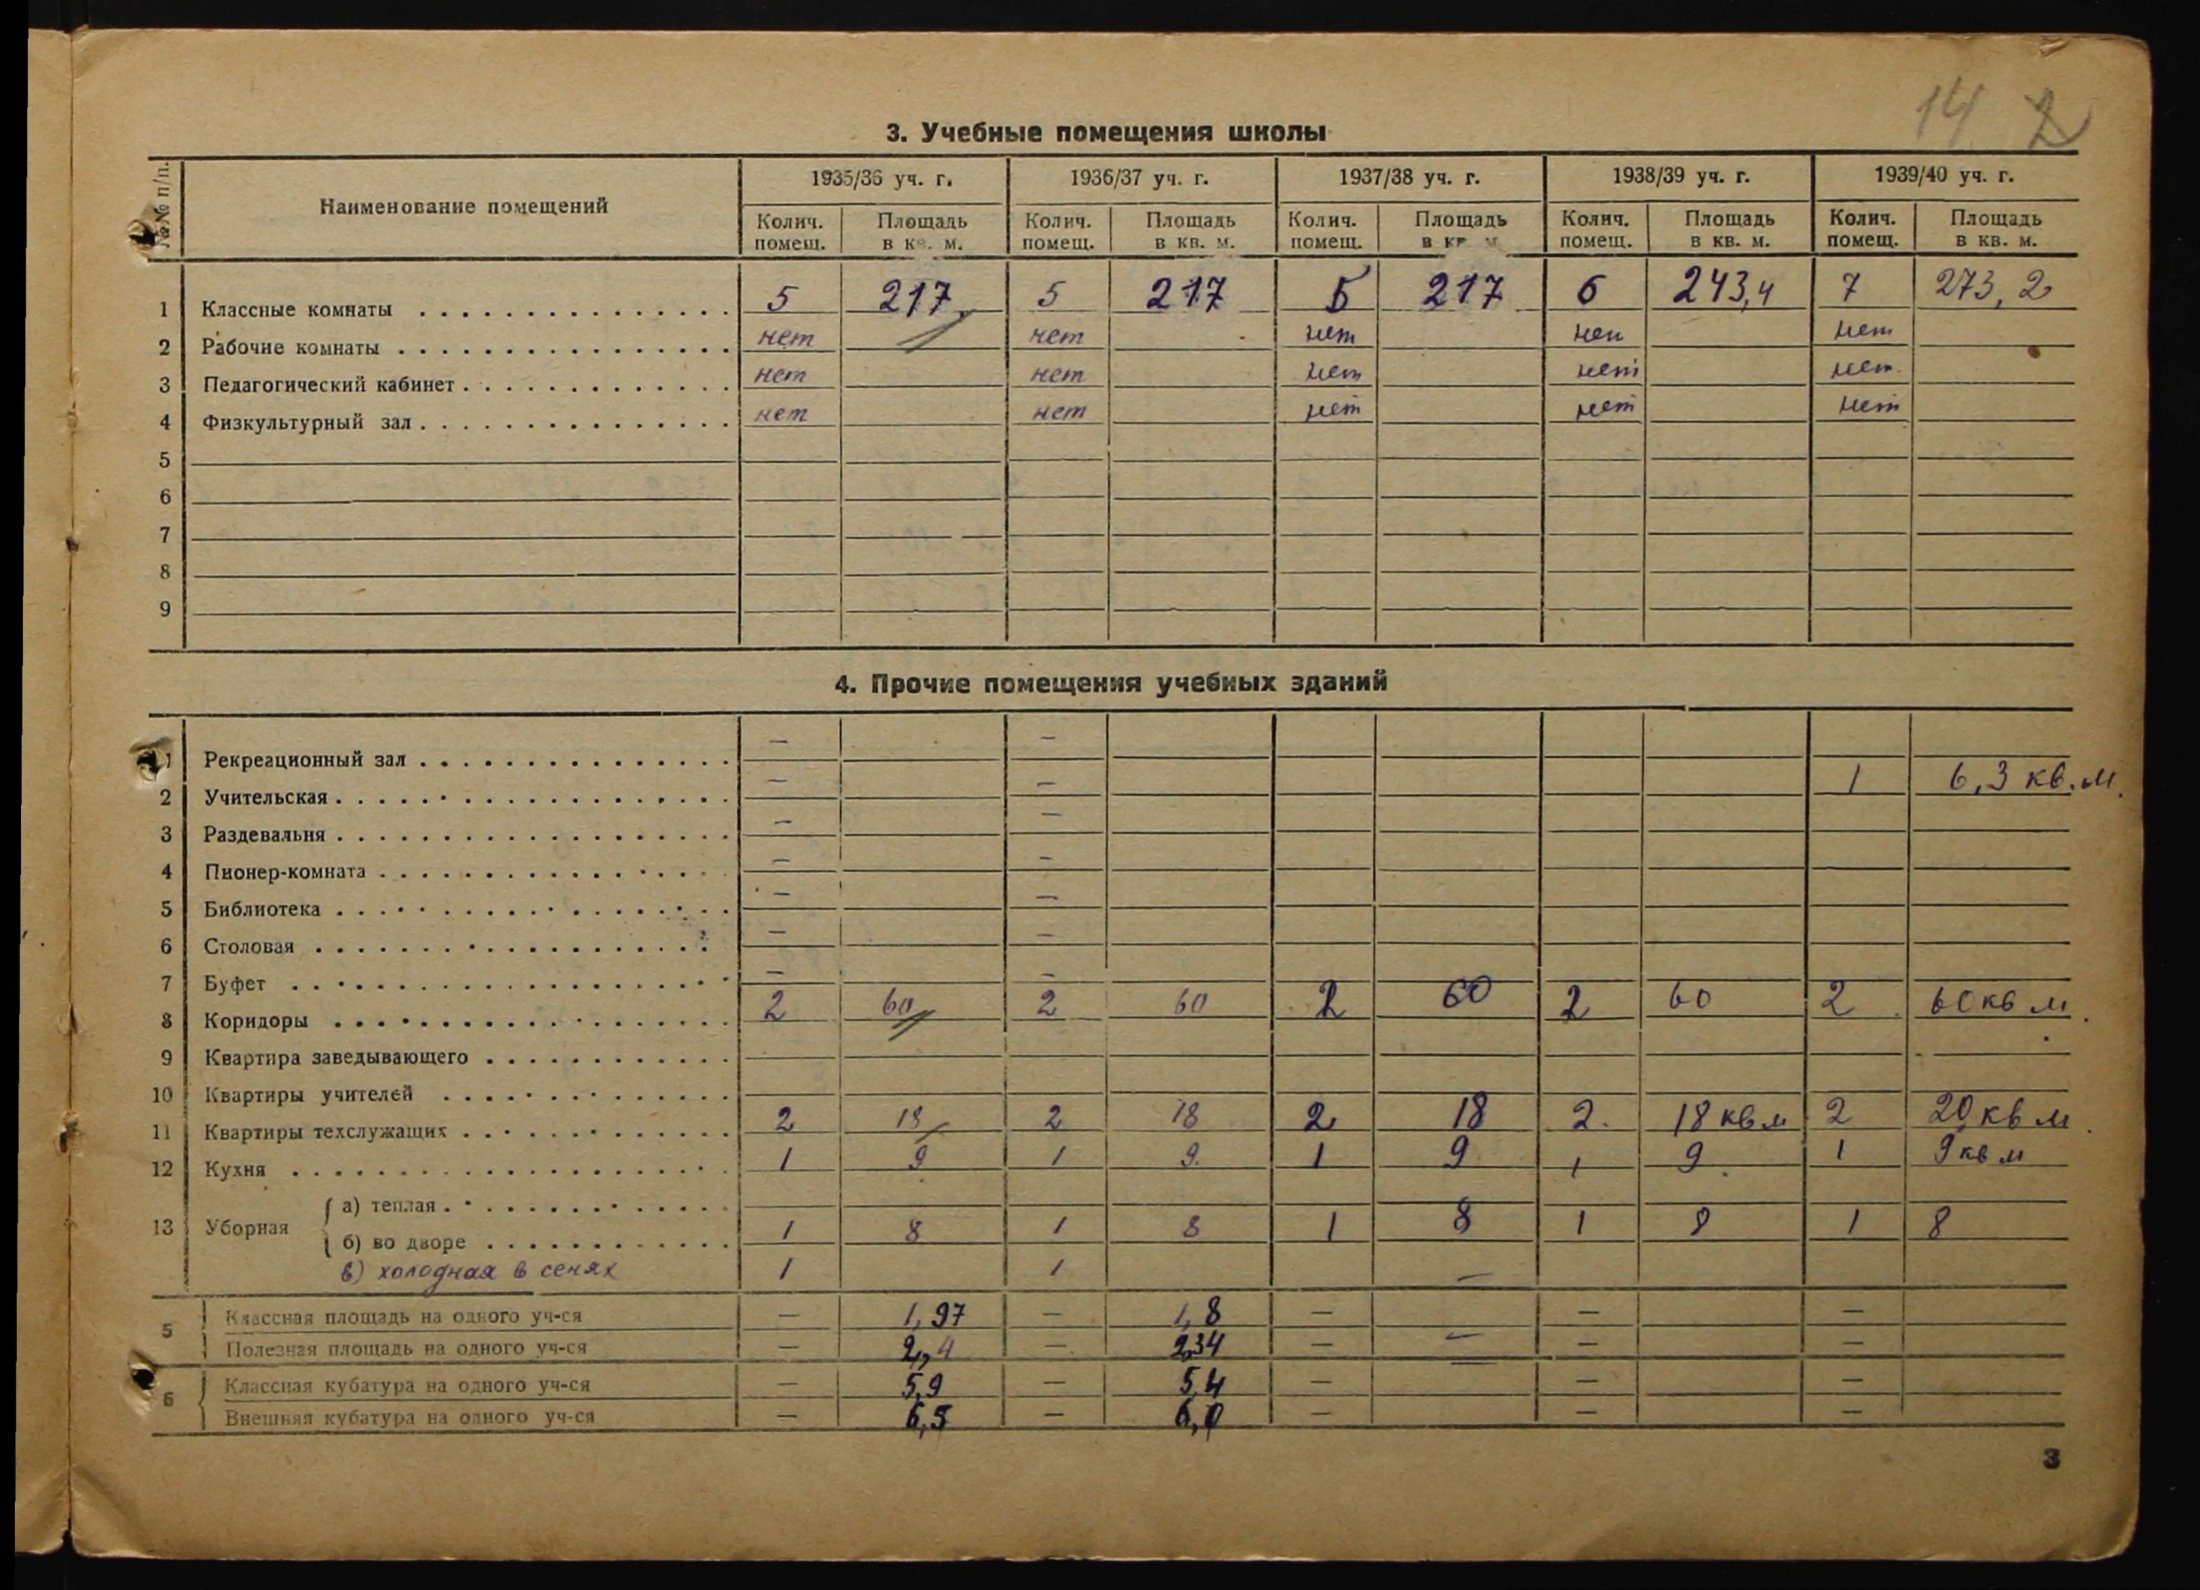 14 2
3. Учебные помещения школы
№№ п/п. Наименование помещений 1935/36 уч. г. 1936/37 уч. г. 1937/38 уч. г. 1938/39 уч. г. 1939/40 уч. г.
Колич. помещ. Площадь в кв. м. Колич. помещ. Площадь в кв. м. Колич. помещ. Площадь в кв. м. Колич. помещ. Площадь в кв. м. Колич. помещ. Площадь в кв. м.
1 Классные комнаты 5 217 5 217 5 217 6 243,4 7 273,2
2 Рабочие комнаты нет нет нет нет нет
3 Педагогический кабинет нет нет нет нет нет
4 Физкультурный зал нет нет нет нет нет
5
6
7
8
9
4. Прочие помещения учебных зданий
1 Рекреационный зал — —
2 Учительская — — 1 6,3 кв.м.
3 Раздевальня — —
4 Пионер-комната — —
5 Библиотека — —
6 Столовая — —
7 Буфет — —
8 Коридоры 2 60 2 60 2 60 2 60 2 60 кв м.
9 Квартира заведывающего
10 Квартиры учителей
11 Квартиры техслужащих 2 18 2 18 2 18 2. 18 кв м 2 20 кв м.
12 Кухня 1 9 1 9. 1 9 1 9. 1 9 кв м
13 Уборная а) теплая
б) во дворе 1 8 1 8 1 8 1 8 1 8
в) холодная в сенях 1 1 —
5 Классная площадь на одного уч-ся — 1,97 — 1,8 — — —
Полезная площадь на одного уч-ся — 2,4 — 2,34 — — — —
6 Классная кубатура на одного уч-ся — 5,9 — 5,4 — — — —
Внешняя кубатура на одного уч-ся — 6,5 — 6,0 — — —
3